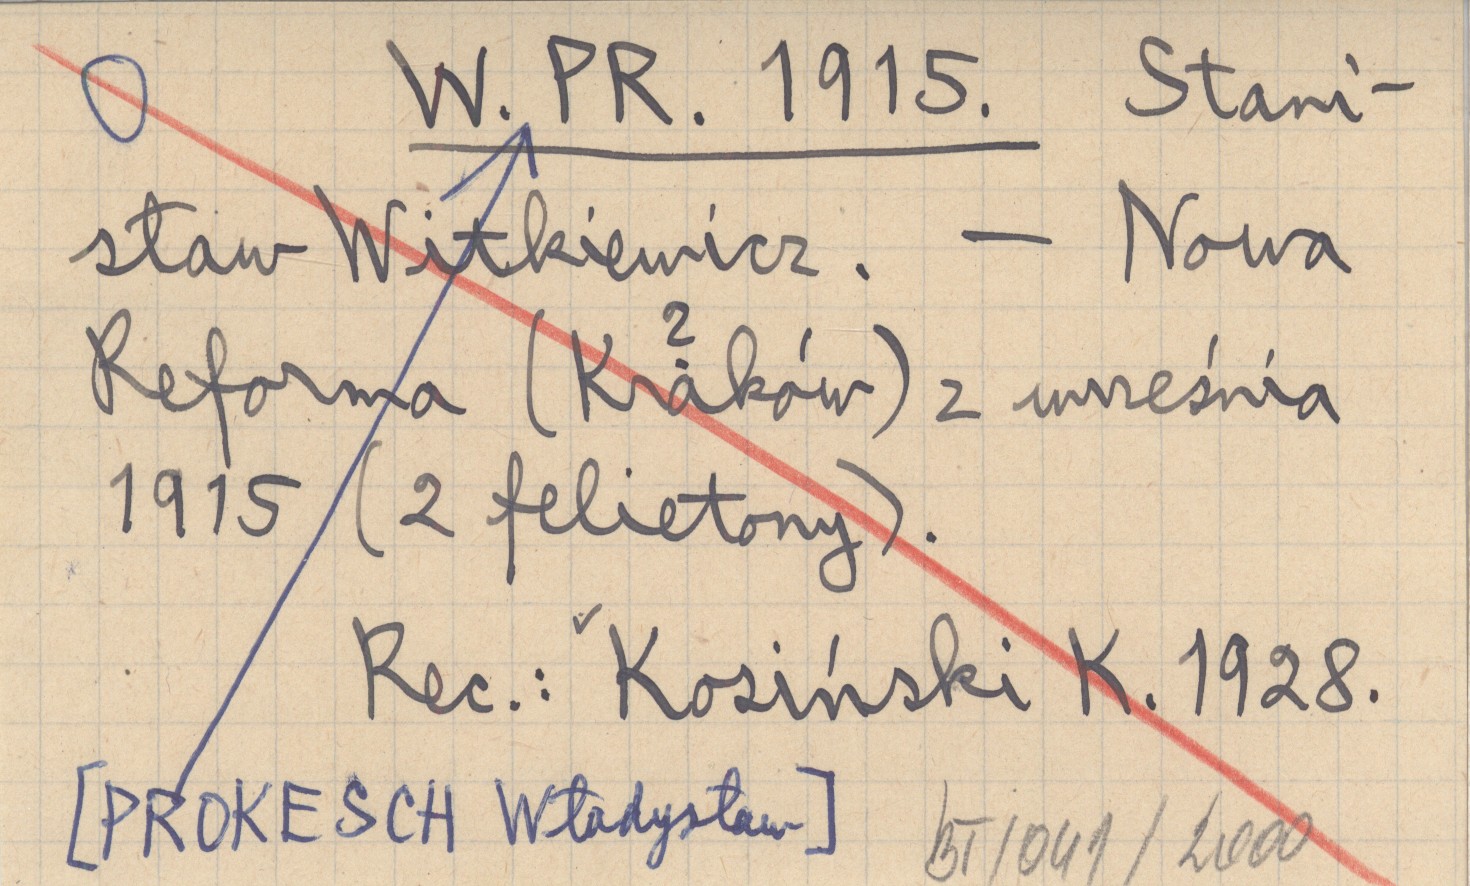 W. PR. 1915. Stani-
sław Witkiewicz. — Nowa
Reforma (Kraków) z września
2
1915 (2 felietony).
Rec.: Kosiński K. 1928.
[PROKESCH Władysław]
BT/041/2000